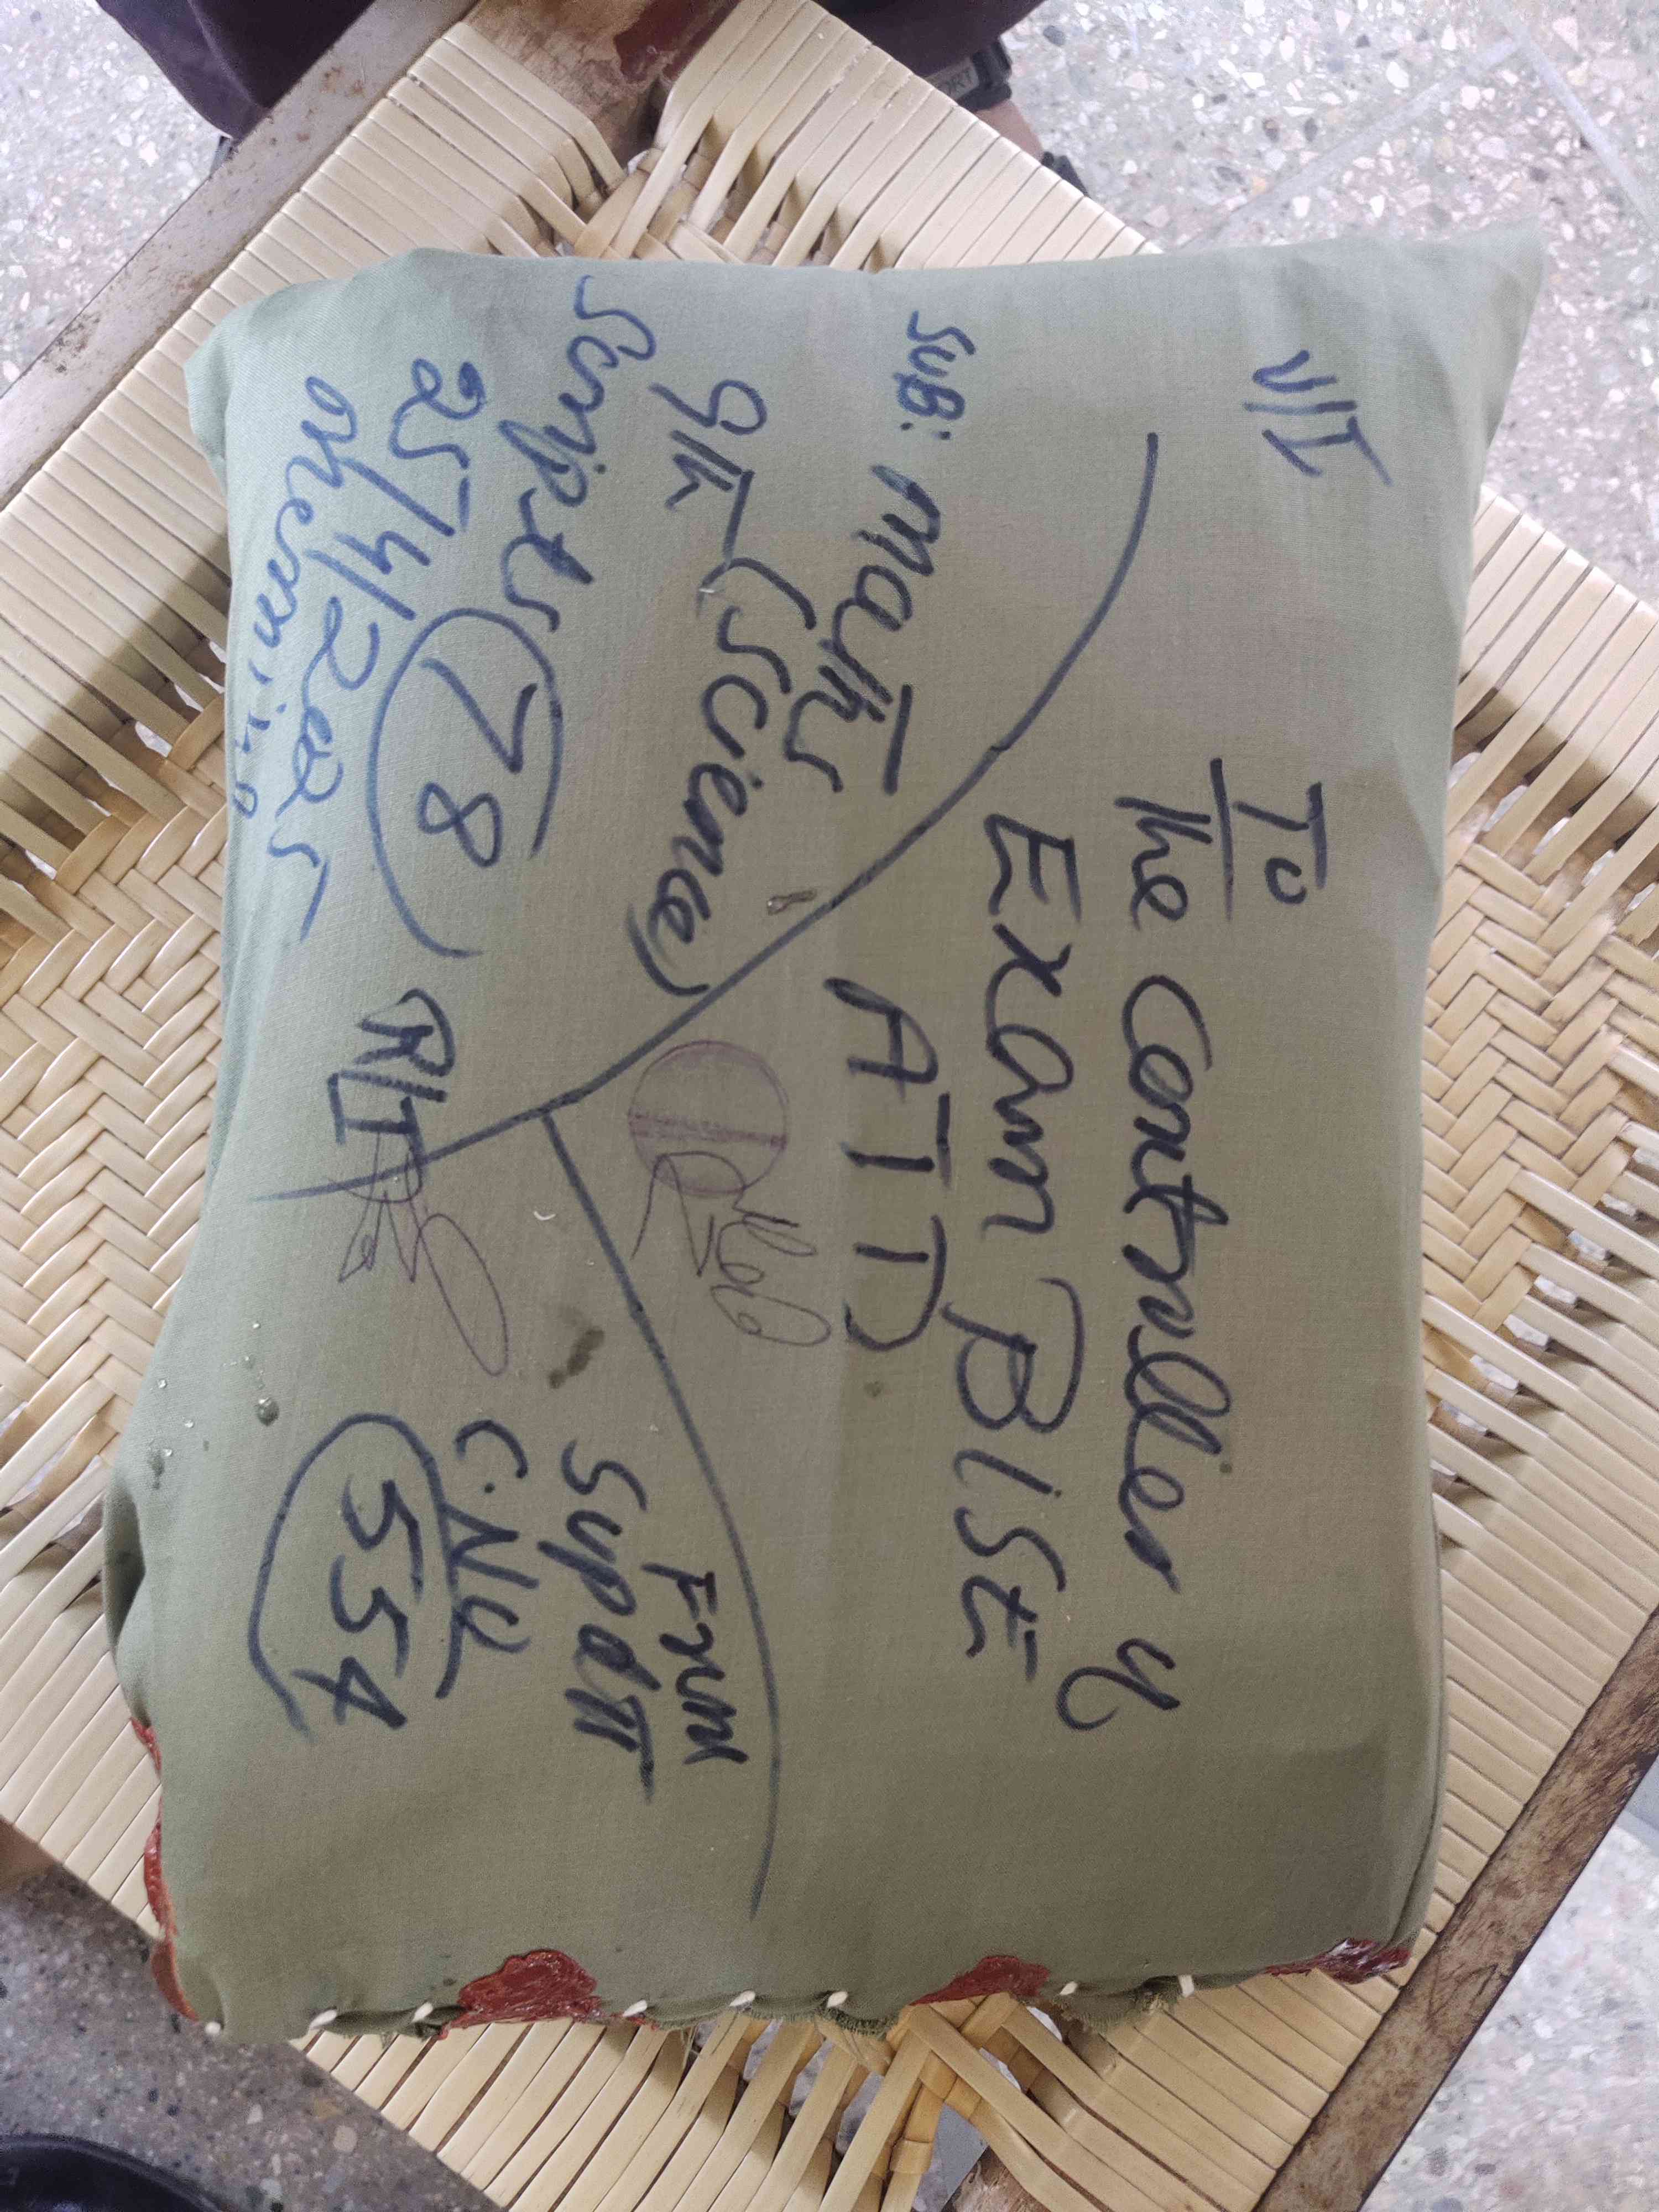 VII
To
The Controller of
Exam BISE
ATD
SUB: Maths
9th (Science)
Scripts 78
25/4/2025
Morning
R/I
From
Supdtt
C. No
554